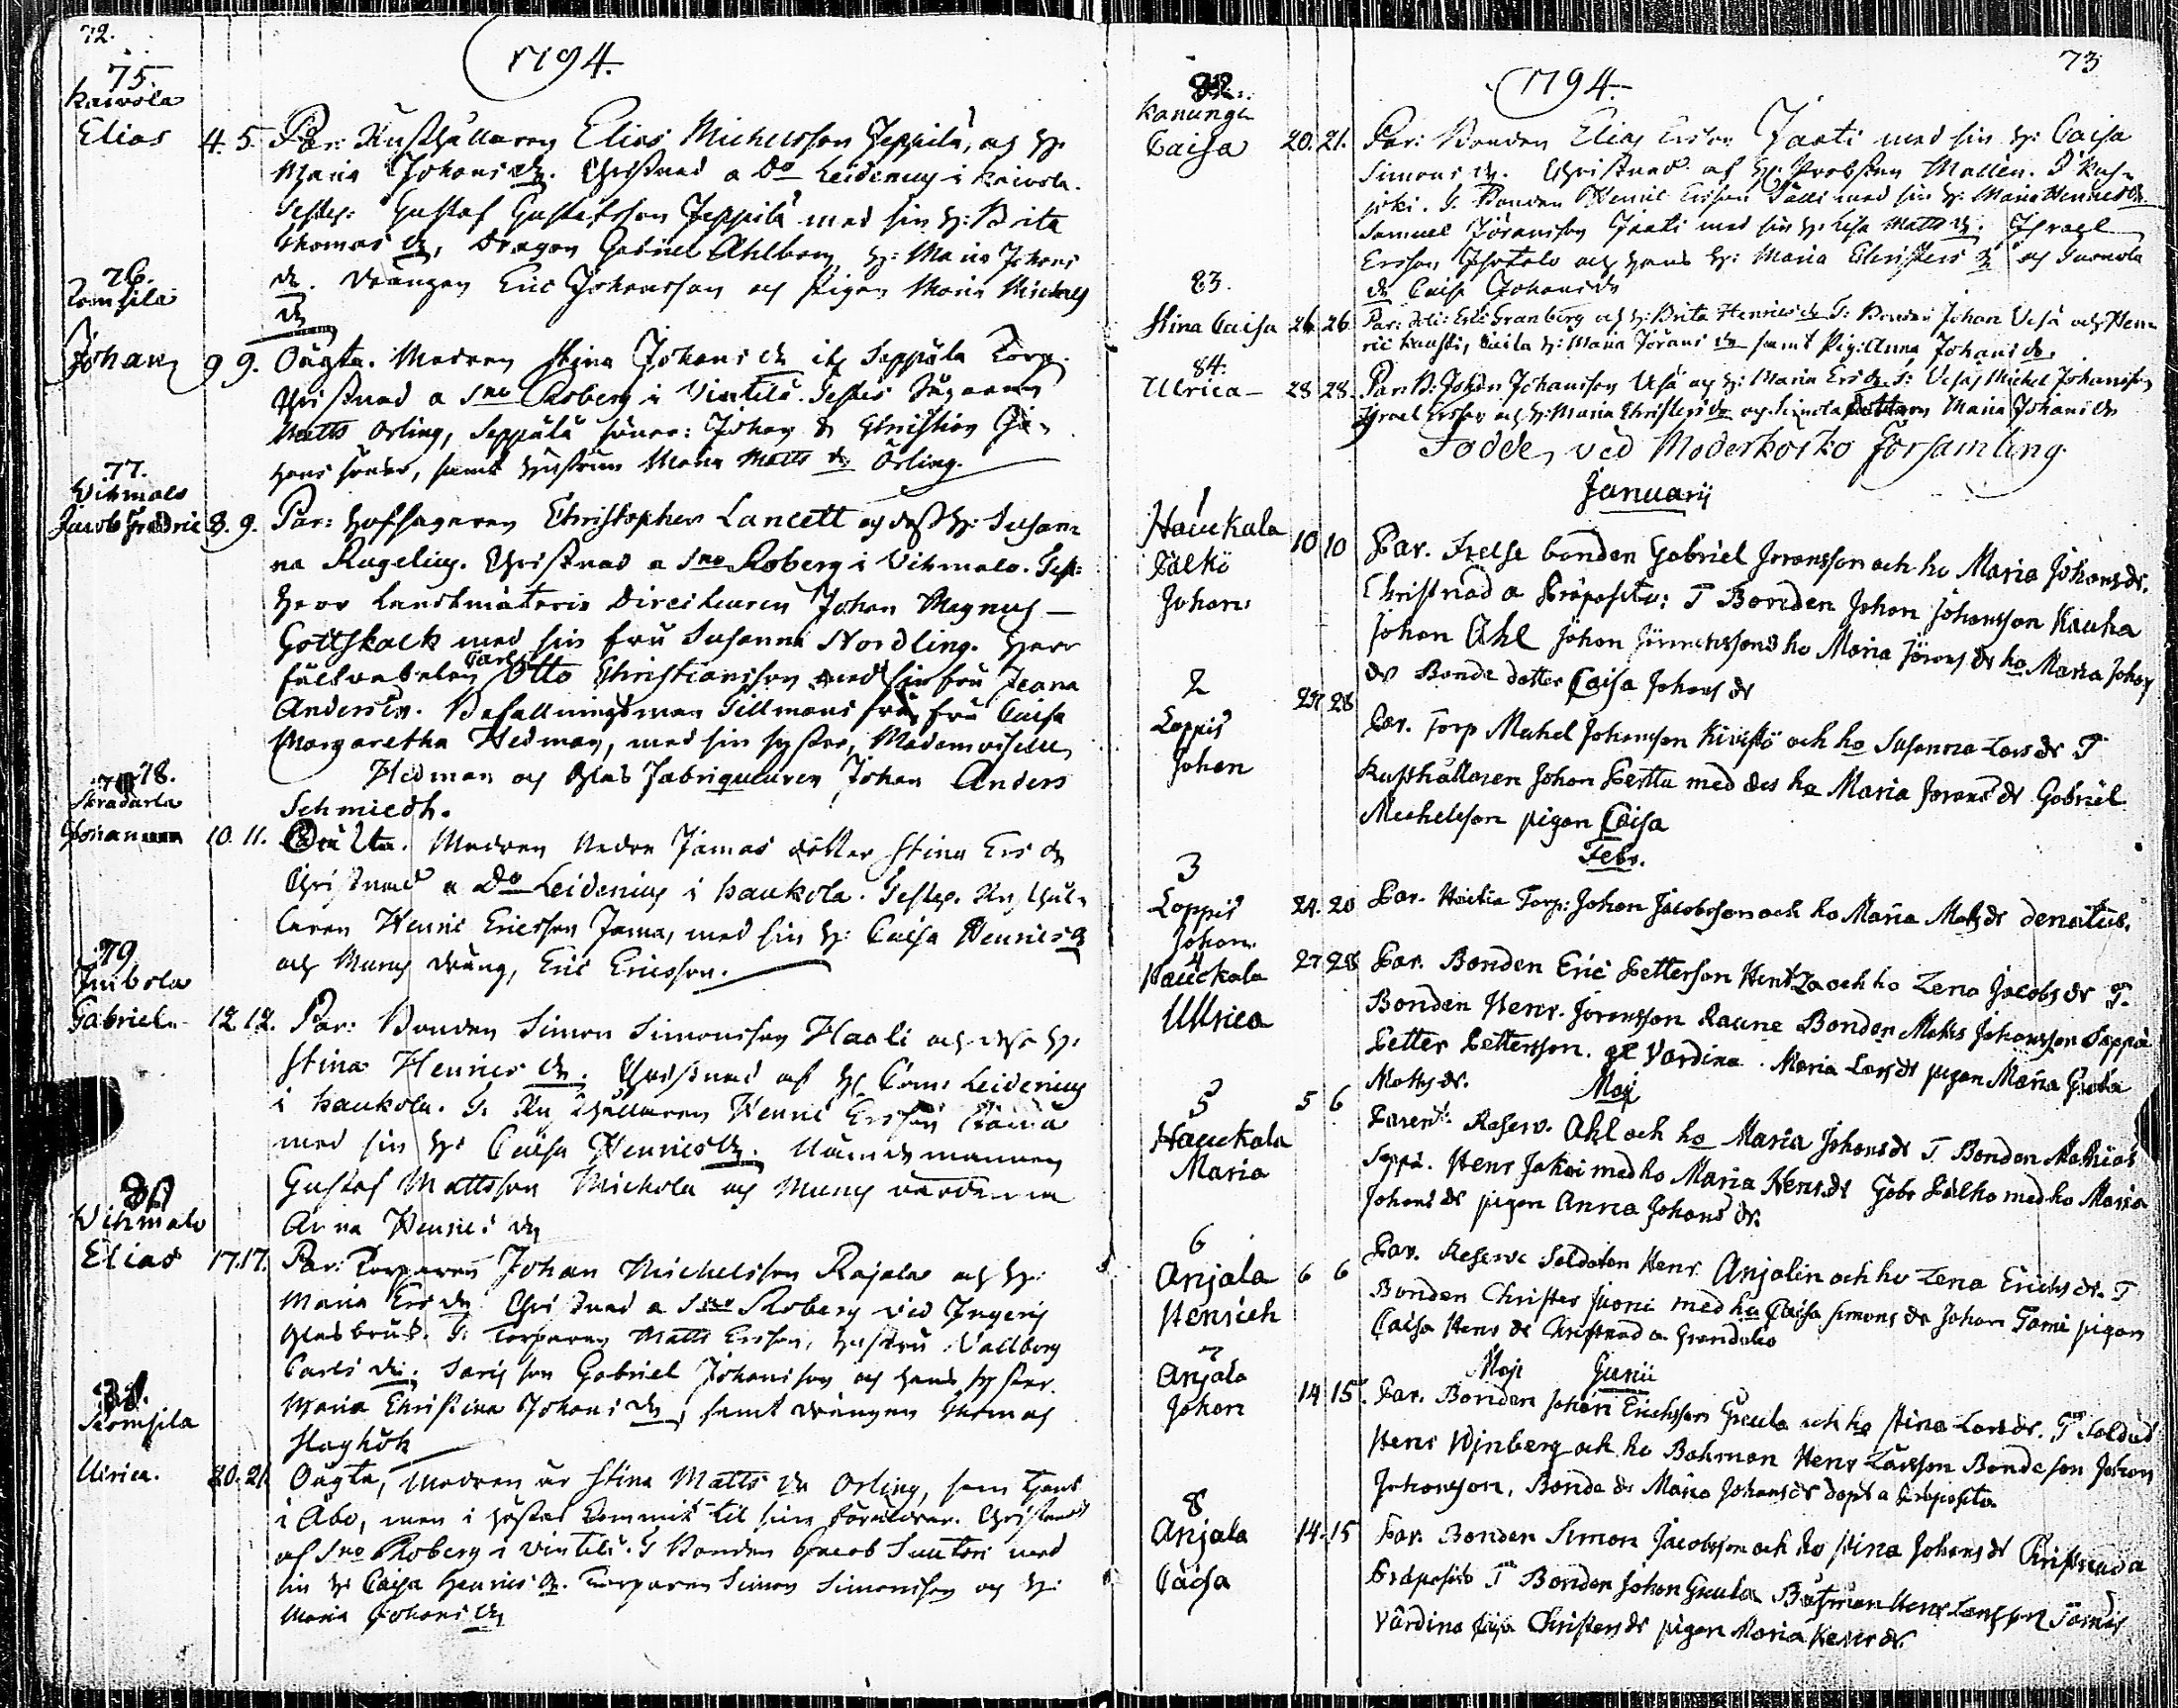 72.
1794.
75.
Kaivola
Elias 4. 5. Par: Rusthållaren Elias Michelsson Jeppilä, och H:
Maria Johans dr. Christnad a Do Leidenius i Kaivola.
Testes: Gustaf Gustafsson Jeppilä med sin H: Brita
Thomas dr, Dragon Gabriel Ahlberg H: Maria Johans
dr. Drängen Eric Johansson och Pigan Maria Michels
dr
76.
Johan 9 9. Oägta. Modren Stina Johans dr Seppälä Torp.
Christnad a Sno Roberg i Vintilä. Testes
Matts Örling, Seppälä söner: Johan & Christian Jo-
hans söner, samt hustrun Maria Matts dr Örling.
77.
Vihmalo
Jacob Fredric 8. 9. Par: Hofslagaren Christopher Lancett och dess H: Susan-
na Rugelius. Christnad a Sno Roberg i Vihmalo. Test:
Herr Landtmäteris Directeuren Johan Magnus
Gottskalk med sin fru Susanna Nordling. Herr
Carl Otto Christiansson med sin fru Jeana
Befallningsman Tillmans fru Caisa
Margaretha Hedman, med sin syster, Mademoiselle
Hedman och Glas Fabriqueuren Johan Anders
Schmiedh.
78.
Johan 10. 11. Oäkta. Modren Nedre Jamas dotter Stina Ers dr
Christnad a Do Leidenius i Haukola. Testes. Rusthål-
laren Henric Ericsson Jama, med sin H: Caisa Henrics dr
och Muny dräng, Eric Ericsson.
79
Gabriel 12. 12. Par: Bonden Simon Simonsson Haali och dess H:
Stina Henrics dr. Christnad af H: Com: Leidenius
i Haukola. T. Rusthållaren Henric Ersson Jama
med sin H: Caisa Henrics dr. Nämndemannen
Gustaf Mattsson Mickola och Muny värdinna
Anna Henrics dr
80
Vihmalo
Elias 17. 17. Par: Torparen Johan Michelsson Rajala och H:
Maria Ers dr Christnad a Sno Roberg vid Ingeris
Glasbruk. T: Torparen Matts Ersson, hustru Vallborg
Carls dr, Gabriel Johansson och hans syster
Maria Christina Johans dr, samt drängen Thomas
Haghök
81.
Ulrica. 20. 21 Oägta, Modren är Stina Matts dr Örling, som tjent
i Åbo, men i höstas kommit til sina föräldrar. Christnad
af Sno Roberg i Vintilä. T Bonden Jacob Suutari med
sin H: Caisa Henrics dr. Torparen Simon Simonsson och H:
Maria Johans dr
73
1794.
82.
Kanunge
Caisa 20. 21. Par: Bonden Elias Ersson Jaati med sin H: Caisa
Simons dr. Christnad af H: Probsten Mallen.
joki. T. Bonden Henric Ersson med sin H: Maria Henrics dr
Samuel Jöransson Jaati med sin H: Lisa Matts dr. Israel
Ersson och hans H: Maria Christers dr och
dr Caisa Johans dr
83.
Stina Caisa 26 26 Par: Eric Granberg och H: Brita Henrics dr T: Bonden Johan Uschä och Hen-
ric H: Maria Jörans dr samt Pig: Anna Johans dr.
84.
Ulrica 28 28 Par: B: Johan Johansson och H: Maria Ers dr T: Michel Johansson
Israel Ersson och H: Maria Christers dr och dottern Maria Johans dr
Födde, vid Moderkorko församling.
Januarij
1
Hauckala 10 10 Par. Frelse bonden Gabriel Joransson och ho Maria Johans dr.
Pälkö Christnad a Præposito: T Bonden Johan Johansson Kauha
Johan Johan Ahl Johan ho Maria Jörans dr ho Maria Johans
dr Bonde dotter Caisa Johans dr
2 27 28
Loppis Par. Torp Mickel Johansson Kivistö och ho Susanna Lars dr T
Johan Rusthållaren Johan Perttu med des ho Maria Jorans dr Gabriel
Michelsson pigan Caisa
Febr.
3
Loppis 24. 20 Par. Torp: Johan Jacobsson och ho Maria Mats dr denatus.
Johan
4
Hauckala 27 28 Par. Bonden Eric Pettersson och ho Lena Jacobs dr T.
Ullrica Bonden Henr. Joransson Raune Bonden Mats Johansson Seppä
Petter Pettersson. gl Vardina. Maria Lars dr pigan Maria Greta
Mats dr.
Maj
5 5 6
Hauckala Parent: Reserv. Ahl och ho Maria Johans dr T Bonden Mathias
Maria Seppä. Henr Jakoi med ho Maria Henr dr Gabr Pälko med ho Maria
Johans dr pigan Anna Johans dr.
6
Anjala 6 6 Par. Reserve Soldaten Henr Anjalin och ho Lena Erichs dr. T
Henrich Bonden Christer Juoni med ho Caisa Simons dr Johan Tomi pigan
Caisa Henr dr Christnad a Grondalio
Maji Junii
7
Anjala
Johan 14 15. Par. Bonden Johan Erichsson Greula och ho Stina Lars dr. T Soldat
Henr Winberg och ho Båtsman Henr Larsson Bonde son Johan
Johansson, Bonde dr Maria Johans dr döpt a Præposito
8
Anjala 14. 15 Par. Bonden Simon Jacobsson och ho Stina Johans dr Christnad a
Caisa Præposito T Bonden Johan Greula Båtsman Henr Larsson Tomis
Värdina Caisa Christers dr pigan Maria Henr dr